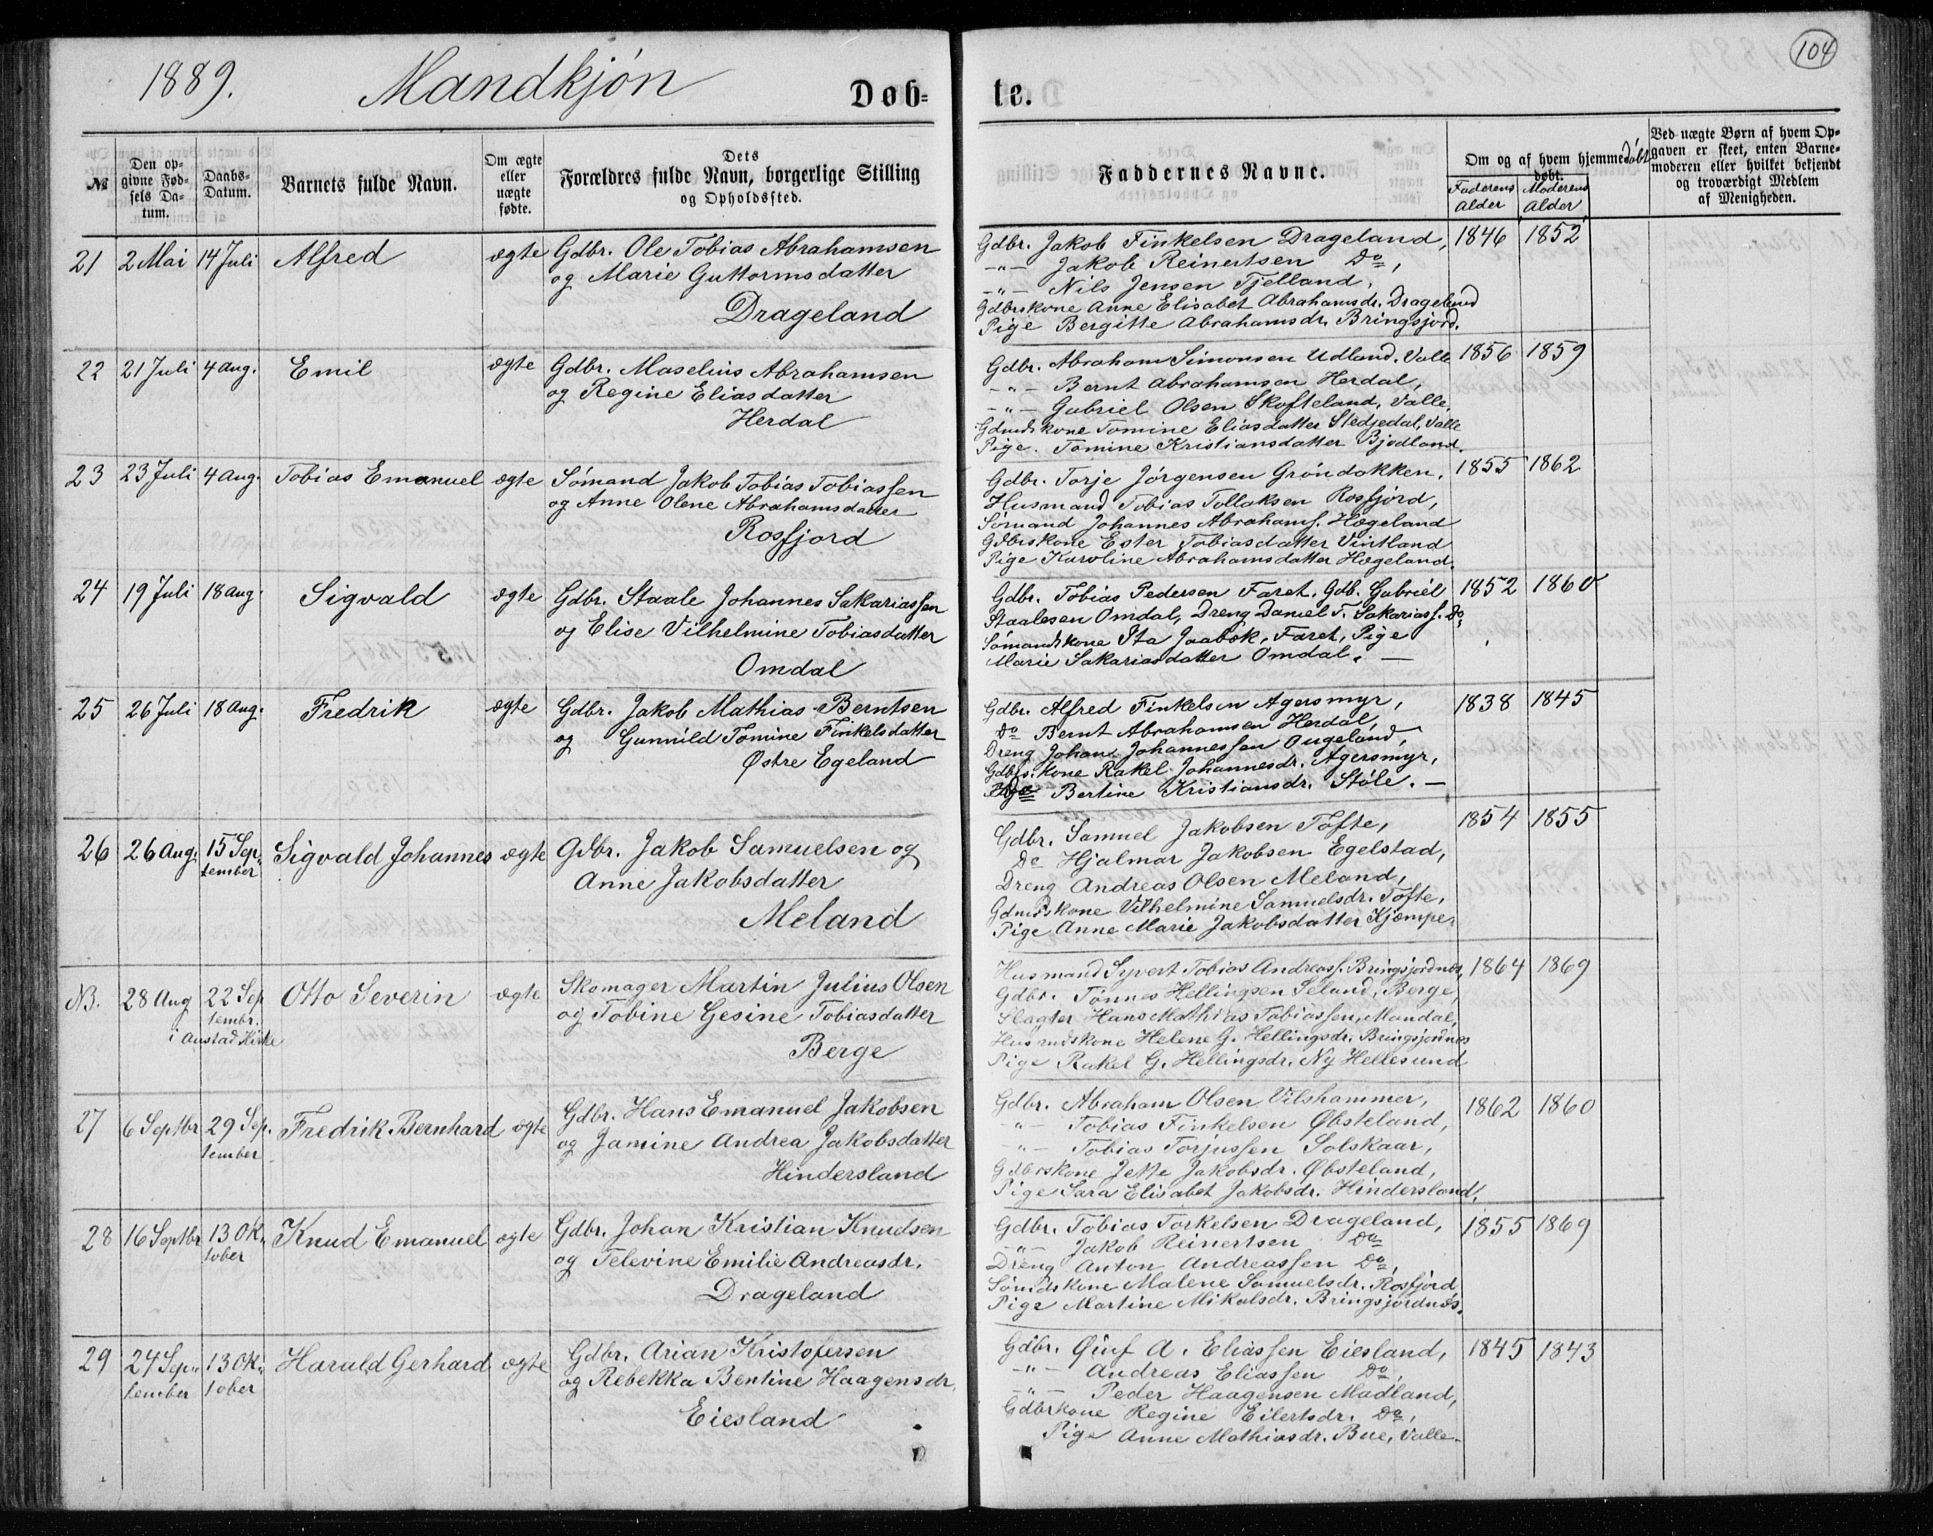 104
1889. Mandkjøn
Døb-
te.
№
Den op-
givne Fød-
sels Da-
tum.
Daabs-
Datum.
Barnets fulde Navn.
Om ægte
eller
uægte
fødte.
Dets
Forældres fulde Navn, borgerlige Stilling
og Opholdssted.
Faddernes Navne.
Om og af hvem hjemmedøbt
døbt.
Faderens
Alder
Moderens
Alder
Ved uægte Børn af hvem Op-
gaven er skeet, enten Barne-
moderen eller hvilket bekjendt
og troværdigt Medlem
af Menigheden.
21 2 Mai 14 Juli Alfred ægte
Gdbr. Ole Tobias Abrahamsen
og Marie Guttormsdatter
Drageland
Gdbr. Jakob Finkelsen Drageland,
-"- Jakob Reinertsen Do,
-"- Nils Jensen Tjelland,
Gdbrskone Anne Elisabet Abrahamsdr. Drageland
Pige Bergitte Abrahamsdr. Bringsjord.
1846 1852
22 21 Juli 4 Aug. Emil ægte
Gdbr. Maselius Abrahamsen
og Regine Eliasdatter
Herdal
Gdbr. Abraham Simonsen Udland, Valle
-"- Bernt Abrahamsen Herdal,
-"- Gabriel Olsen Skofteland, Valle,
Gdmdskone Tomine Eliasdatter Stedjedal, Valle
Pige. Tomine Kristiansdatter Bjodland.
1856 1859
23 23 Juli 4 Aug. Tobias Emanuel ægte
Sømand Jakob Tobias Tobiassen
og Anne Olene Abrahamsdatter
Rosfjord
Gdbr. Torje Jørgensen Grøndokken.
Husmand Tobias Tollaksen Rosfjord,
Sømand Johannes Abrahams. Hægeland
Gdbrskone Ester Tobiasdatter Vintland
Pige Karoline Abrahamsdatter Hægeland.
1855 1862
24 19 Juli 18 Aug. Sigvald ægte
Gdbr. Staale Johannes Sakariassen
og Elise Vilhelmine Tobiasdatter
Omdal
Gdbr. Tobias Pedersen Faret. Gdb. Gabriel
Staalesen Omdal, Dreng Daniel T. Sakariass. Do
Sømandskone Sta Jaabæk, Faret, Pige
Marie Sakariasdatter Omdal. —
1852 1860
25 26 Juli 18 Aug. Fredrik ægte
Gdbr. Jakob Mathias Berntsen
og Gunnild Tomine Finkelsdatter
Østre Egeland
Gdbr. Alfred Finkelsen Agersmyr,
Do Bernt Abrahamsen Herdal,
Dreng Johan Johannessen Ougeland,
Gdbrs.kone Rakel Johannesdr. Agersmyr,
Do Bertine Kristiansdr. Støle. —
1838 1845
26 26 Aug. 15 Sep-
tember
Sigvald Johannes ægte
Gdbr. Jakob Samuelsen og
Anne Jakobsdatter
Meland
Gdbr. Samuel Jakobsen Tofte,
Do Hjalmar Jakobsen Egelstad,
Dreng Andreas Olsen Meland,
Gdmdskone Vilhelmine Samuelsdr. Tofte,
Pige Anne Marie Jakobsdatter Kjæmpe.
1854 1855
NB. 28 Aug 22 Sep
tembr.
i Austad Kirke
Otto Severin ægte
Skomager Martin Julius Olsen
og Tobine Gesine Tobiasdatter
Berge
Husmand Syvert Tobias Andreass. Bringsjordnes,
Gdbr. Tønnes Hellingsen Seland, Berge,
Slagter Hans Mathias Tobiassen, Mandal,
Husmdskone Helene G. Hellingsdr. Bringsjordnes
Pige Rakel G. Hellingsdr. Ny Hellesund
1864 1869
27 6 Septbr 29 Sep.
tember
Fredrik Bernhard ægte
Gdbr. Hans Emanuel Jakobsen
og Jamine Andrea Jakobsdatter
Hindersland
Gdbr. Abraham Olsen Vilshammer,
-"- Tobias Finkelsen Øbsteland,
-"- Tobias Torjussen Solskaar,
Gdbrskone Jette Jakobsdr. Øbsteland,
Pige Sara Elisabet Jakobsdr. Hindersland,
1862 1860
28 16 Septbr 13 Ok-
tober
Knud Emanuel ægte
Gdbr. Johan Kristian Knudsen
og Televine Emilie Andreasdr.
Drageland
Gdbr. Tobias Torkelsen Drageland,
-"- Jakob Reinertsen Do
Dreng Anton Andreassen Do,
Sømdskone Malene Samuelsdr. Rosfjord
Pige Martine Mikalsdr. Bringsjordnes.
1855 1869
29 24 Sep-
tember
13 Ok-
tober
Harald Gerhard ægte
Gdbr. Arian Kristofersen
og Rebekka Bentine Haagensdr.
Eiesland
Gdbr. A. Eliassen Eiesland,
-"- Andreas Eliassen Do,
-"- Peder Haagensen Madland,
Gdbrkone Regine Eilertsdr. Do,
Pige Anne Mathiasdr. Bue, Valle.
1845 1843